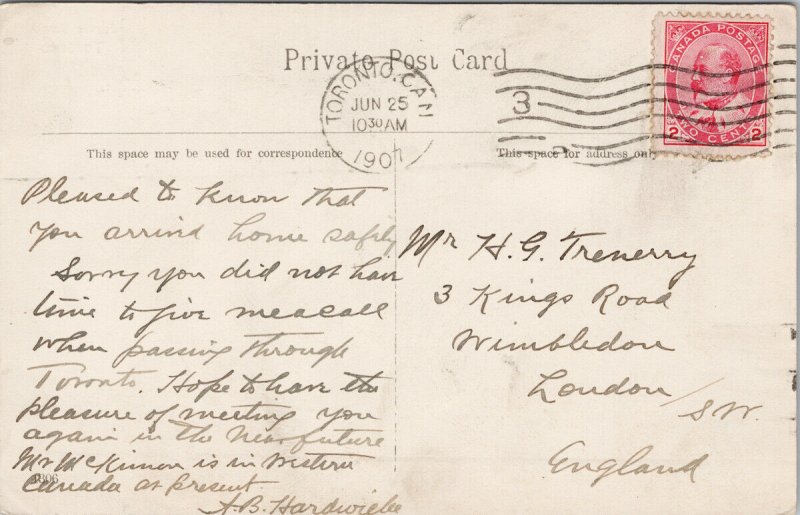 Private Post Card
TORONTO, CAN
JUN 25
10 30 AM
1907
3
CANADA POSTAGE
2 TWO CENTS 2
This space may be used for correspondence
This space for address only
Pleased to know that
you arrived home safely
Sorry you did not have
time to give me a call
when passing through
Toronto. Hope to have the
pleasure of meeting you
again in the near future
Mr McKinnon is in Western
Canada at present
A.B. Hardwicke
Mr H. G. Trenerry
3 Kings Road
Wimbledon
London / SW.
England